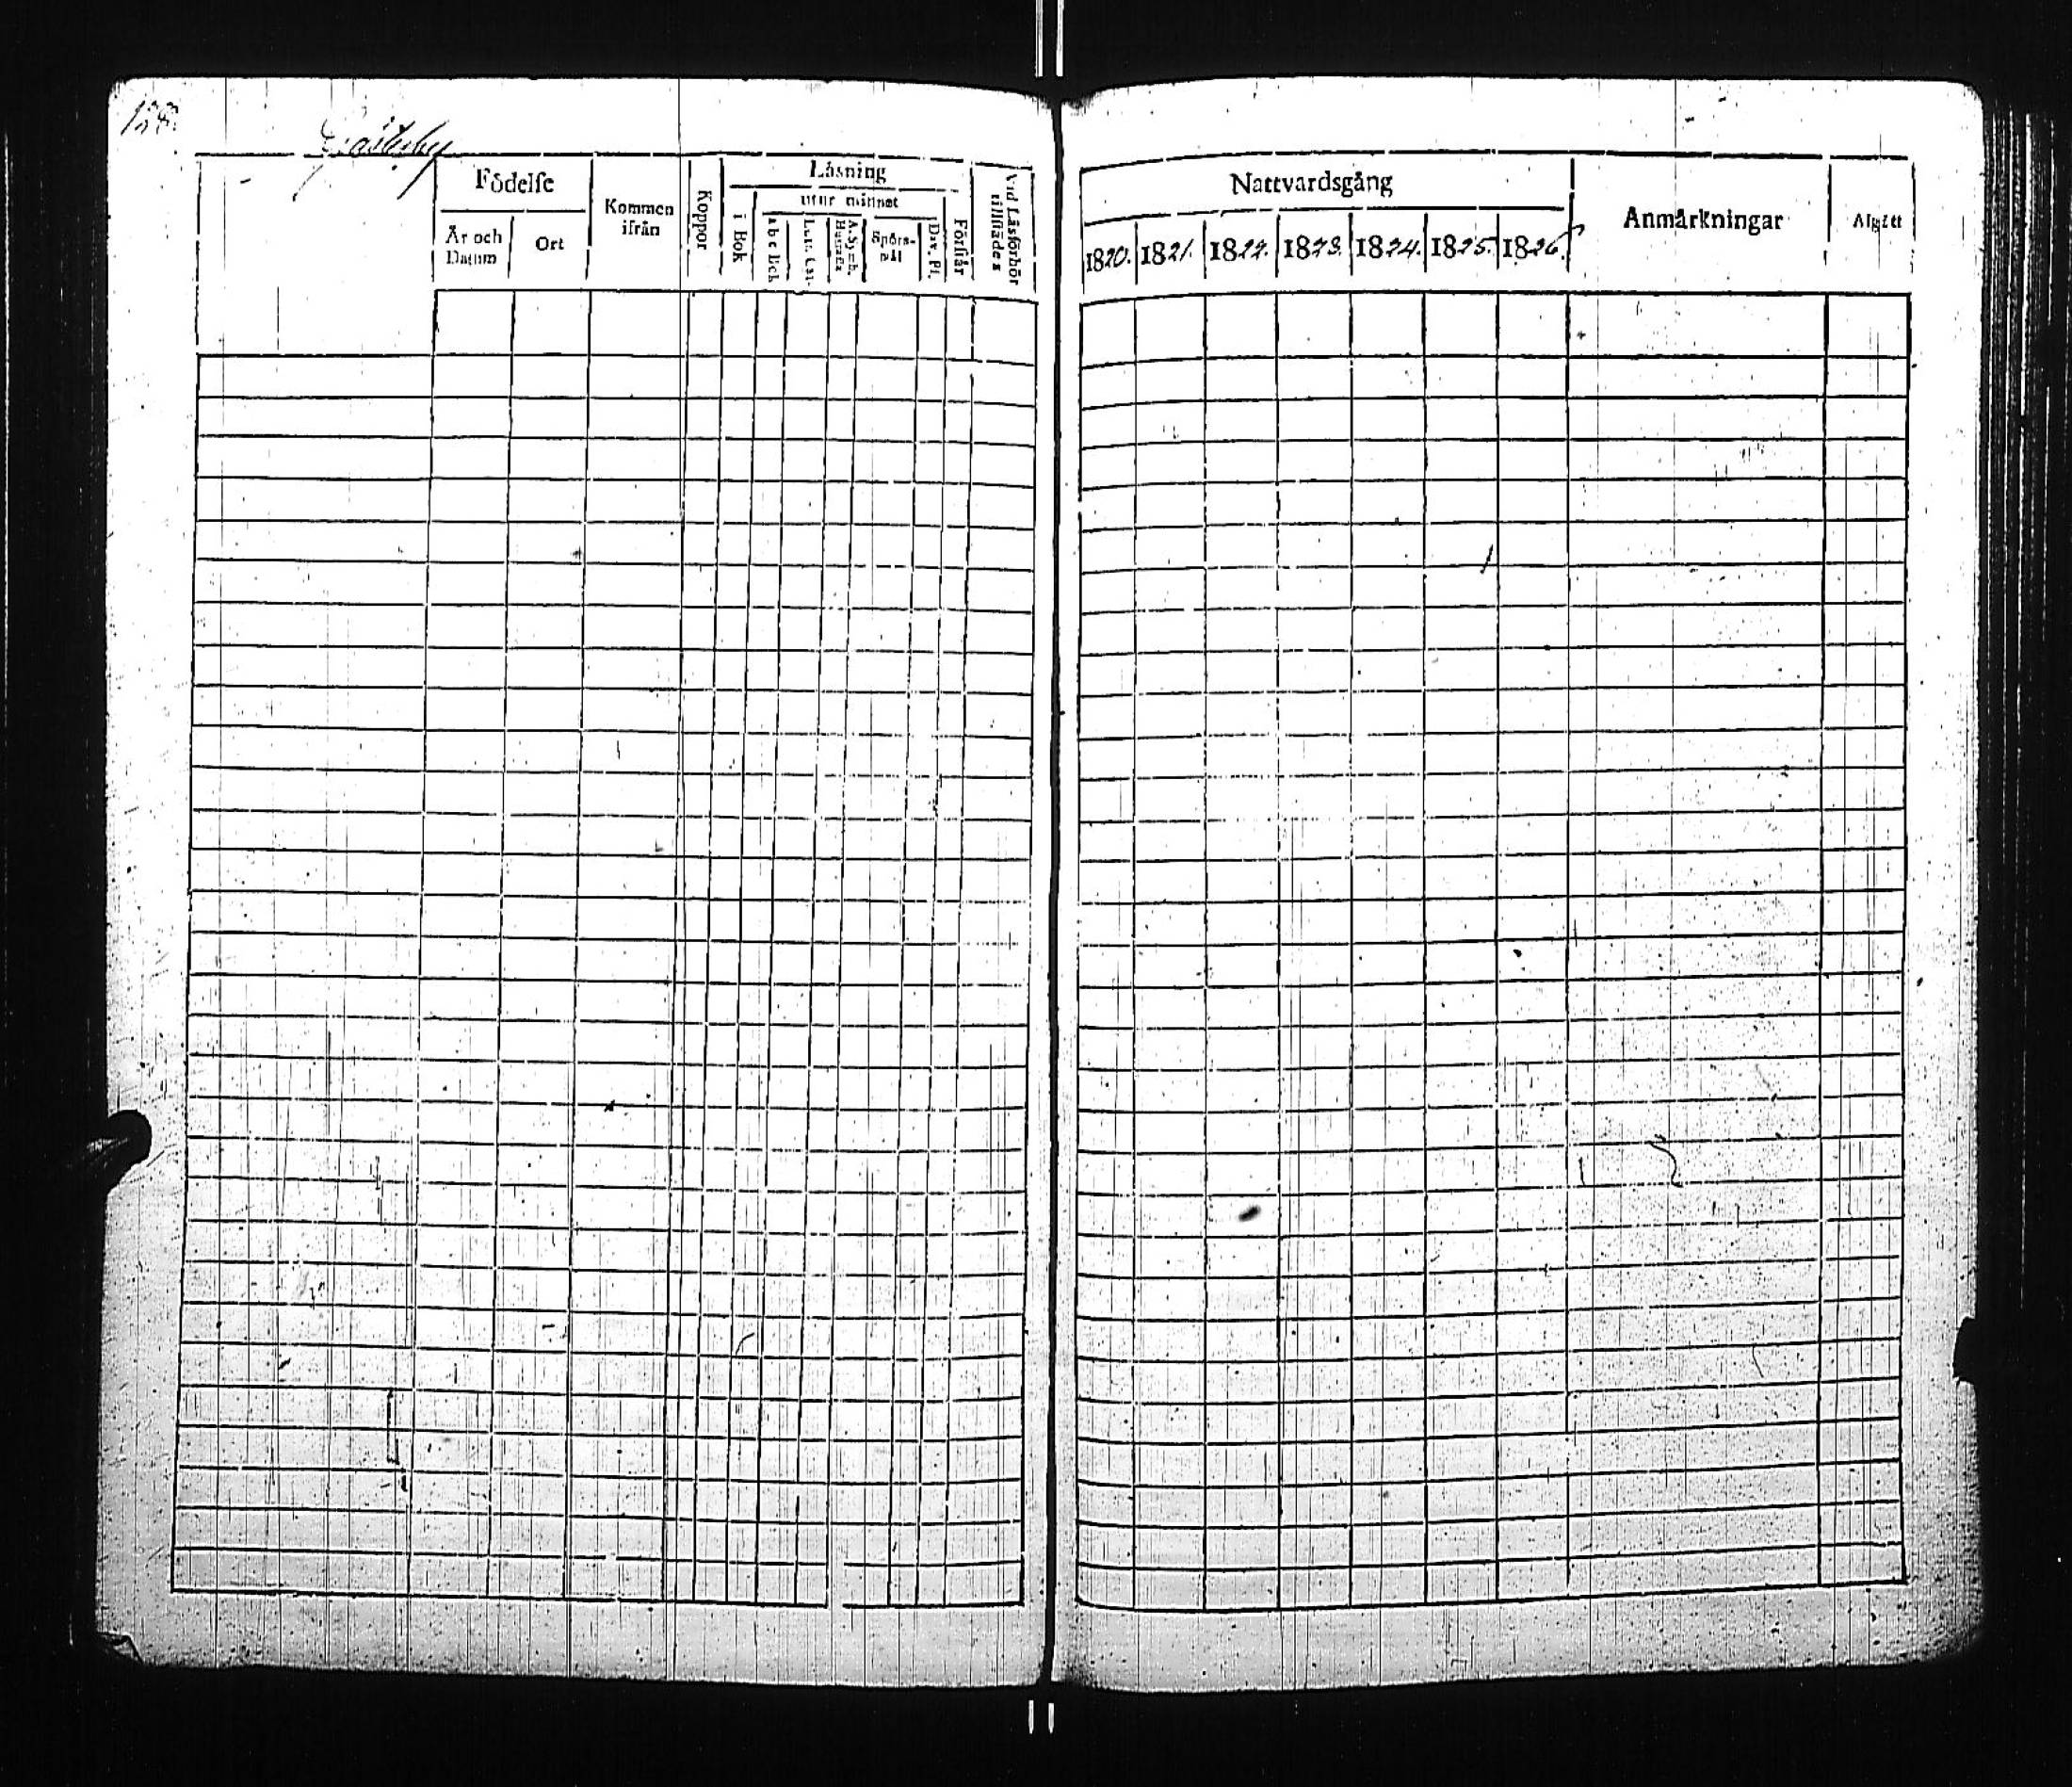 Födelse
År och Datum
Ort
Kommen ifrån
Koppor
Läsning
i Bok
utur minnet
a b c Bok
A. Symb.
Spörs-mål
Dav. Ps.
Förstår
Vid Läsförhör tillstädes
Nattvardsgång
1820. 1821. 1822. 1823. 1824. 1825. 1826.
Anmärkningar
Afgått